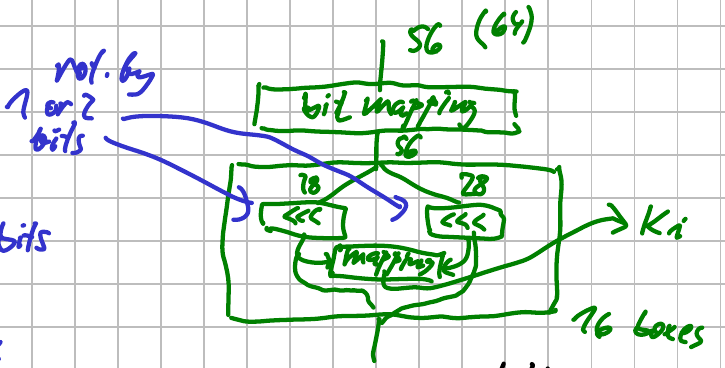 56 (64)
rot. by
1 or 2
bits
bit mapping
56
28 28
<<< <<<
mapping
Ki
bits
16 boxes